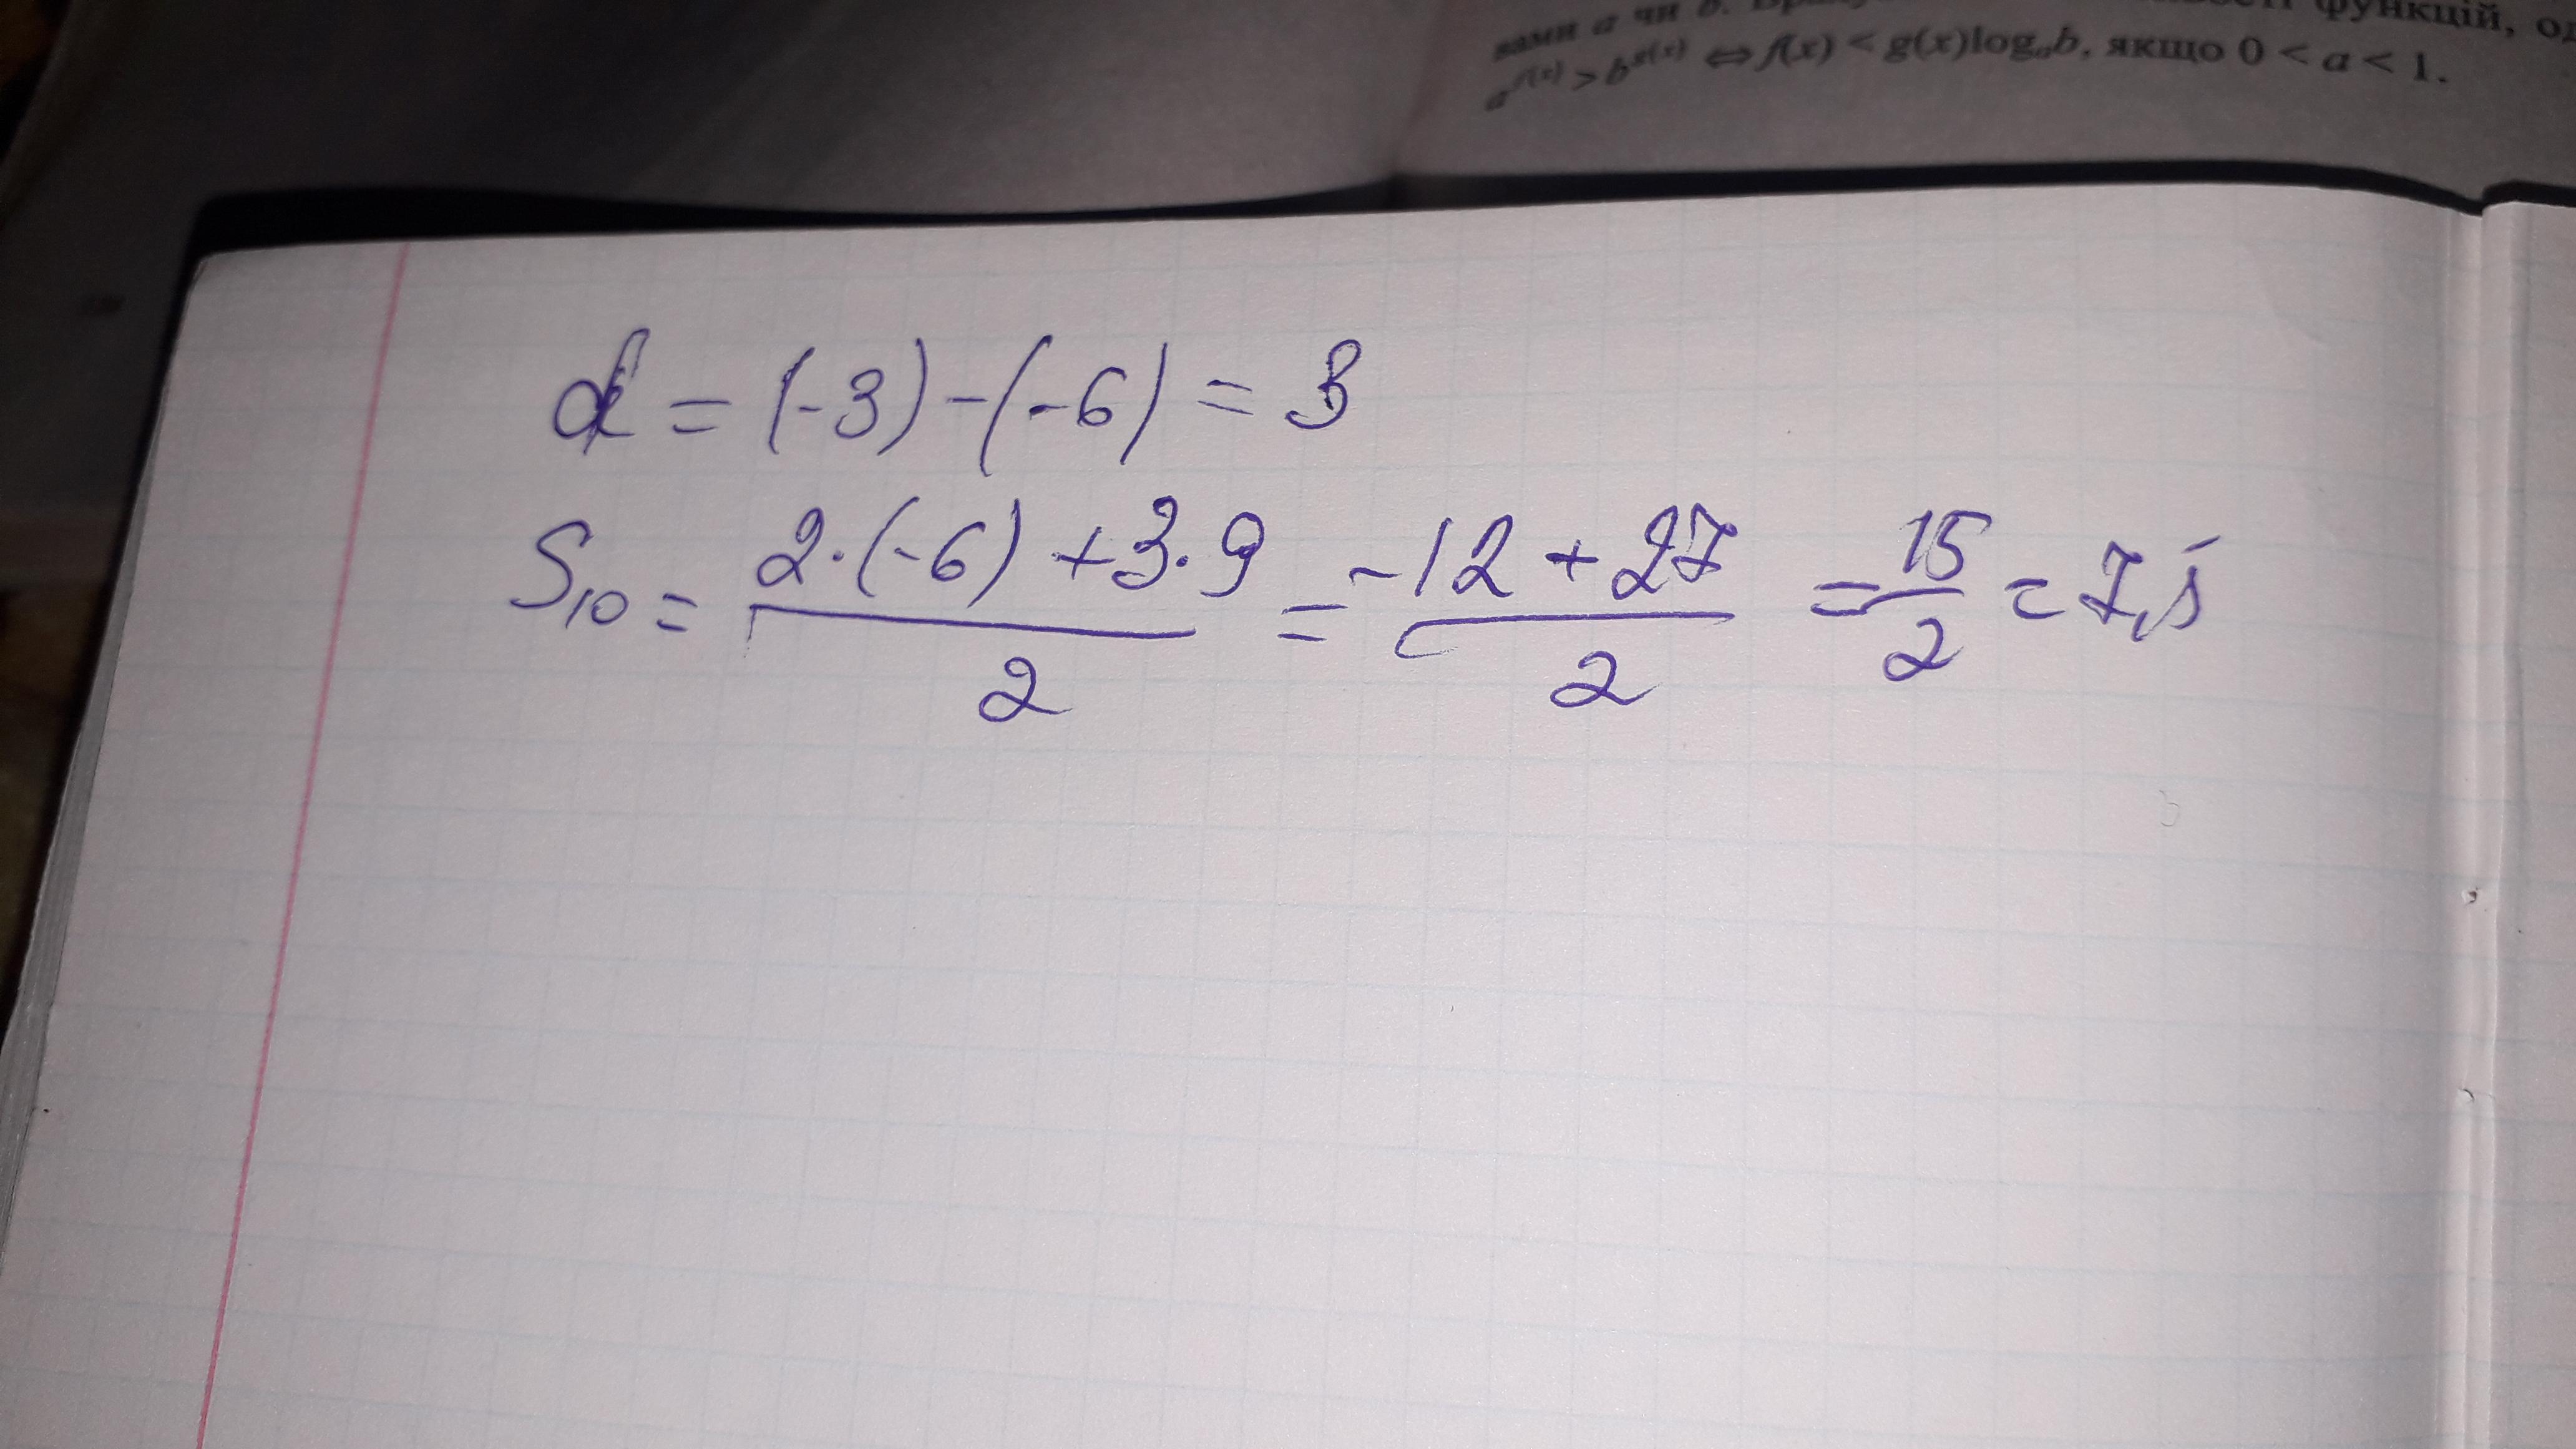 вами a чи b.
функцій,
a^{f(x)} > b^{g(x)} ⇔ f(x) < g(x)log_a b, якщо 0 < a < 1.
d = (-3) - (-6) = 3
S_{10} = \frac{2·(-6) + 3·9}{2} = \frac{-12 + 27}{2} = \frac{15}{2} = 7,5